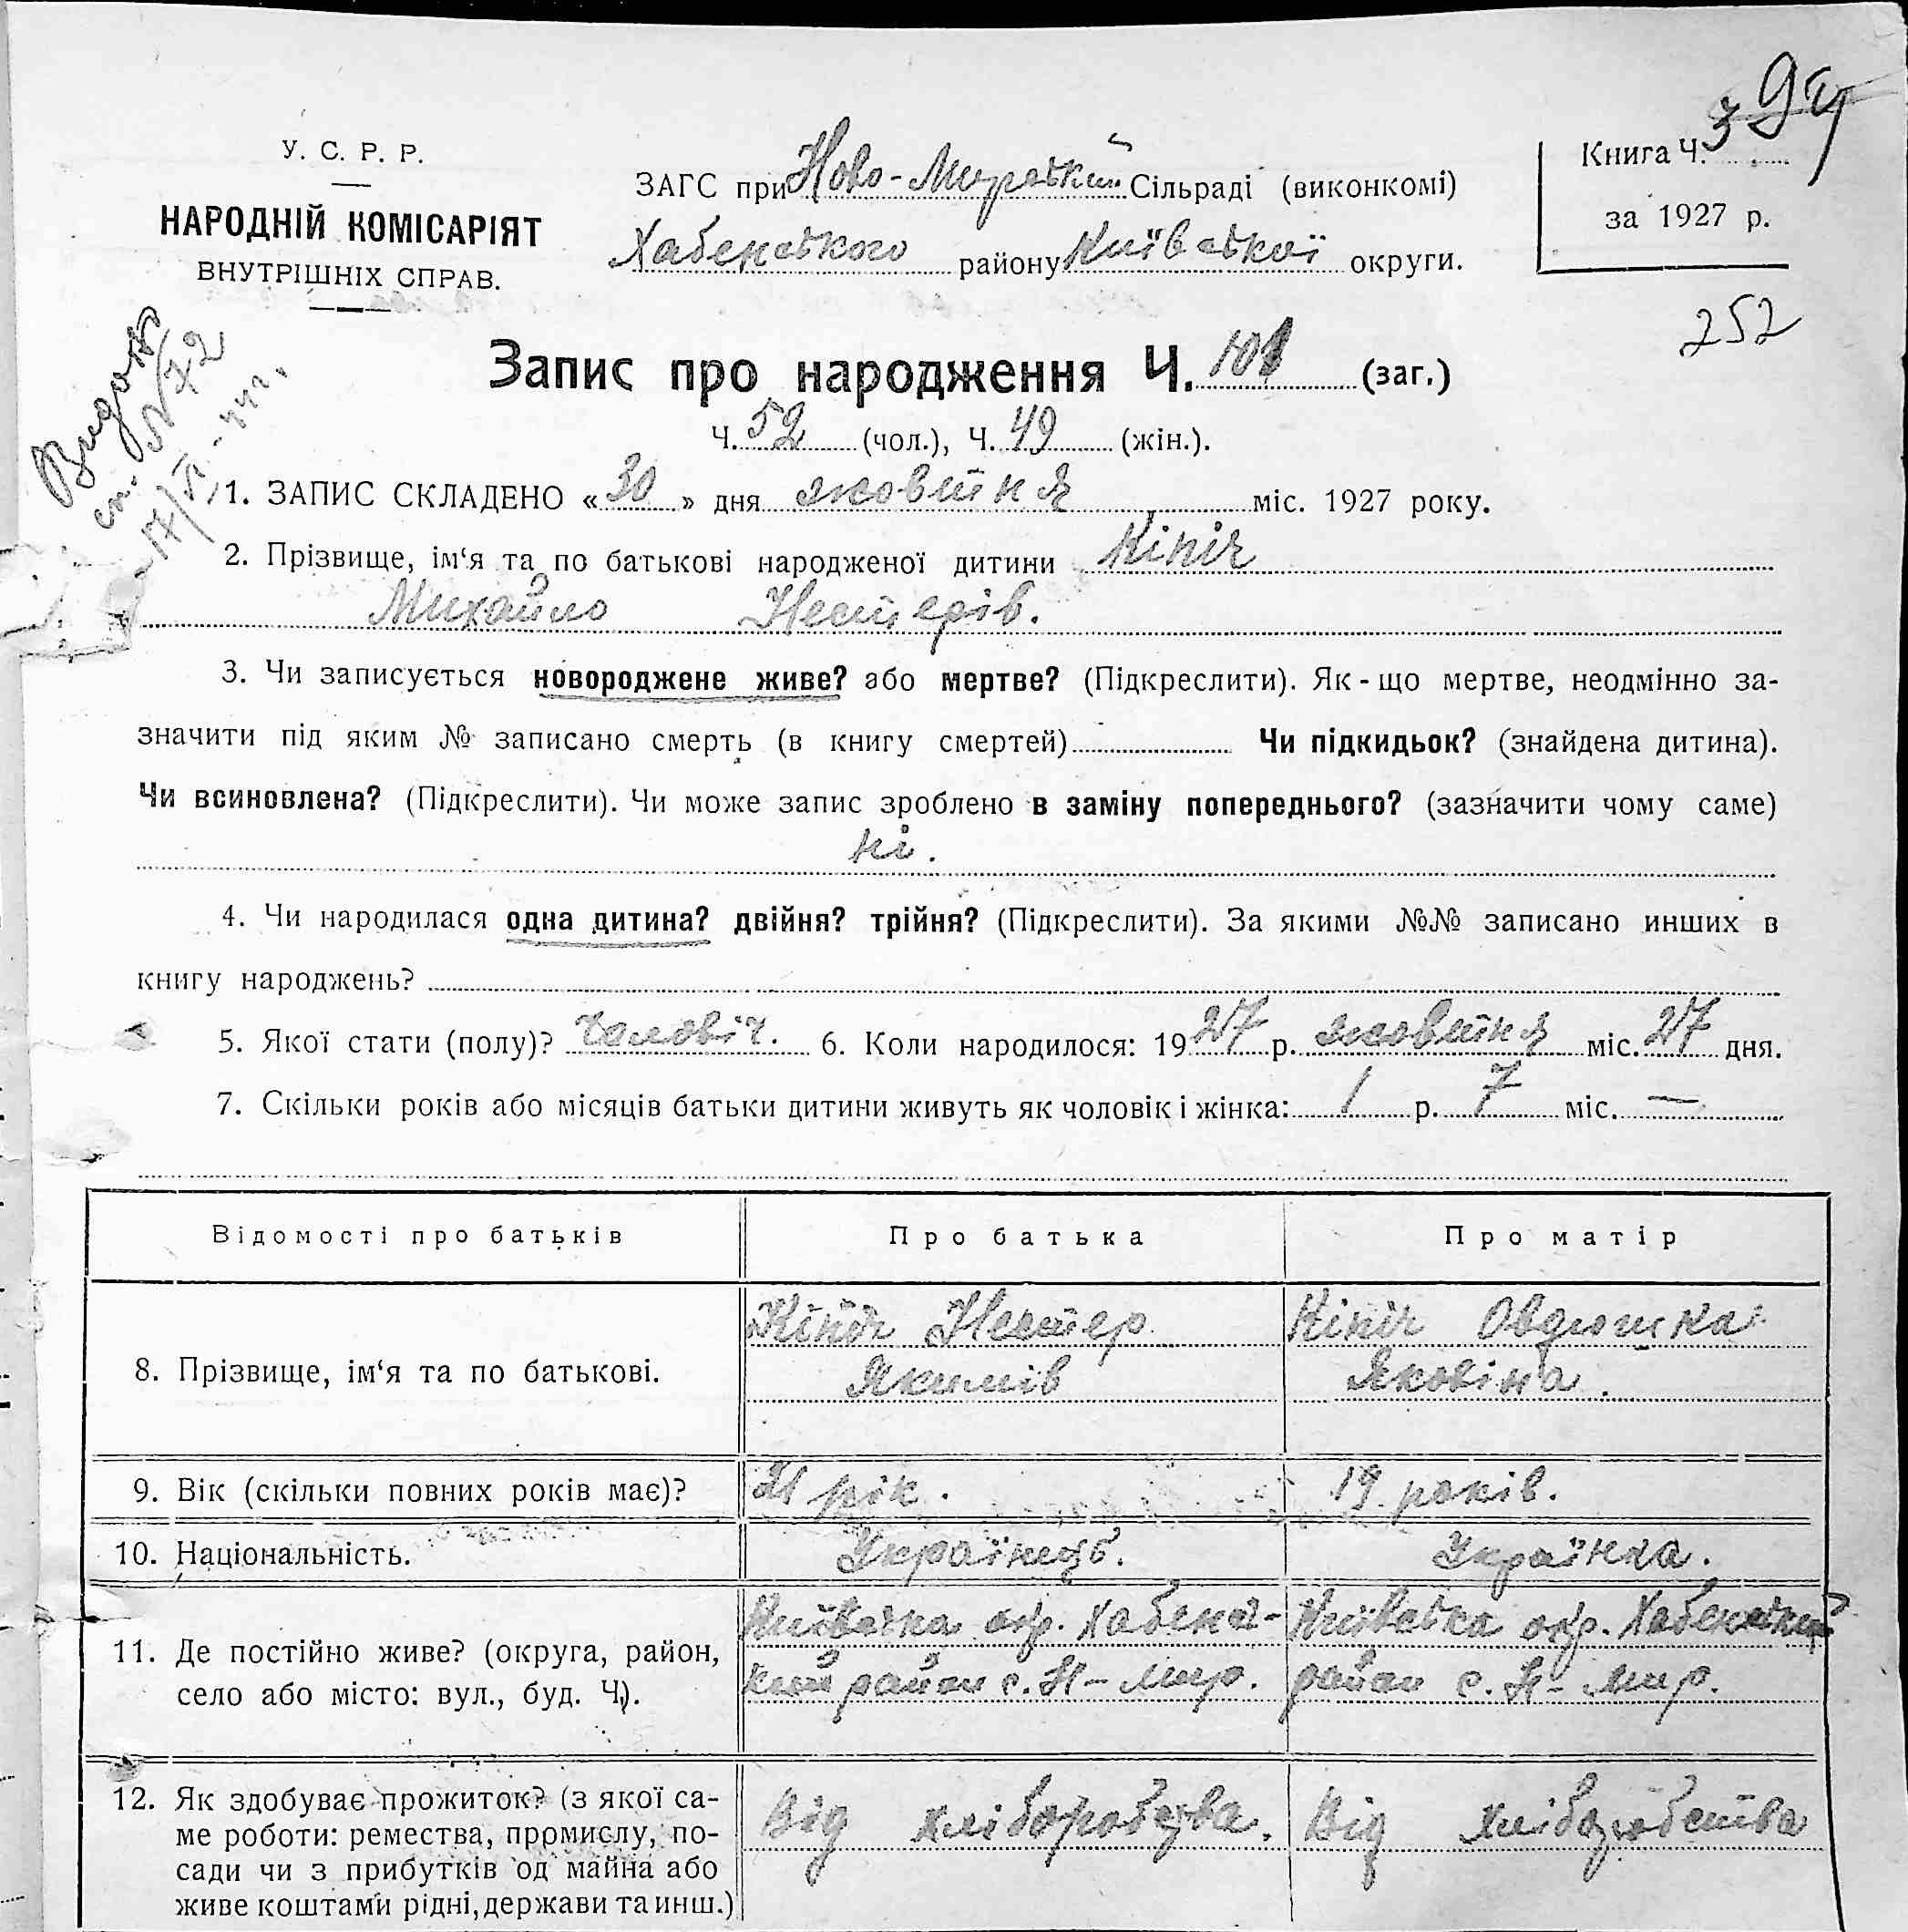 У. С. Р. Р.
НАРОДНІЙ КОМІСАРІЯТ
ВНУТРІШНІХ СПРАВ.
ЗАГС при Ново-Мирський Сільраді (виконкомі)
Хабенського району Київської округи.
Книга Ч. 3
за 1927 р.
252
Запис про народження Ч. 101 (заг.)
Ч. 52 (чол.), Ч. 49 (жін.).
1. ЗАПИС СКЛАДЕНО «30» дня жовтня міс. 1927 року.
2. Прізвище, ім‘я та по батькові народженої дитини Кіпіч
Михайло Нестерів.
3. Чи записується новороджене живе? або мертве? (Підкреслити). Як-що мертве, неодмінно за-
значити під яким № записано смерть (в книгу смертей) Чи підкидьок? (знайдена дитина).
Чи всиновлена? (Підкреслити). Чи може запис зроблено в заміну попереднього? (зазначити чому саме)
ні.
4. Чи народилася одна дитина? двійня? трійня? (Підкреслити). За якими №№ записано инших в
книгу народжень?
5. Якої стати (полу)? чоловіч. 6. Коли народилося: 1927 р. жовтня міс. 27 дня.
7. Скільки років або місяців батьки дитини живуть як чоловік і жінка: 1 р. 7 міс. —
Відомості про батьків
Про батька
Про матір
8. Прізвище, ім‘я та по батькові.
Кіпіч Нестер
Якимів
Кіпіч Овдюшка
Яковіна.
9. Вік (скільки повних років має)?
21 рік.
19 років.
10. Національність.
Українець.
Українка.
11. Де постійно живе? (округа, район,
село або місто: вул., буд. Ч.).
Київська окр. Хабенсь-
кий район с. Н-Мир.
Київська окр. Хабенський
район с. Н-Мир.
12. Як здобуває прожиток? (з якої са-
ме роботи: ремества, промислу, по-
сади чи з прибутків од майна або
живе коштами рідні, держави та инш.)
Від хліборобства.
Від хліборобства